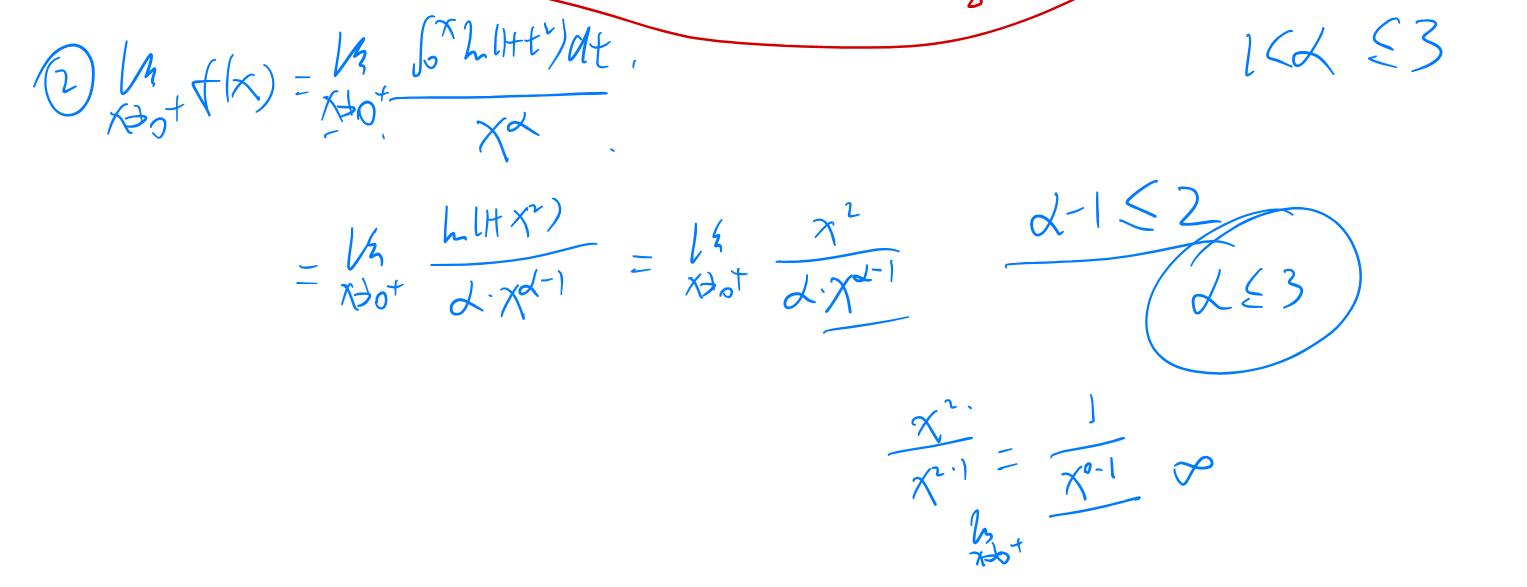 ② lim_{x→0⁺} f(x) = lim_{x→0⁺} ∫₀ˣ ln(1+t²)dt / x^α
1<α ≤3
= lim_{x→0⁺} ln(1+x²) / α·x^{α-1} = lim_{x→0⁺} x² / α·x^{α-1}
α-1 ≤ 2
α ≤ 3
x² / x^{2.1} = 1 / x^{0.1} ∞
lim_{x→0⁺}